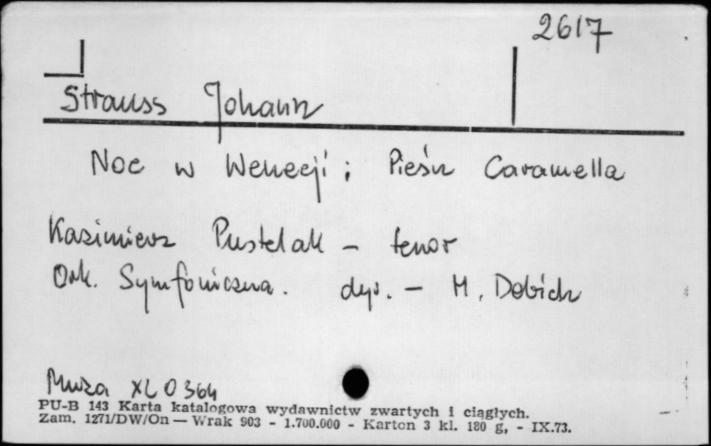 2617
Strauss Johann
Noc w Wenecji; Pieśń Caramella
Kazimierz Pustelak – tenor
Ork. Symfoniczna. dyr. – M. Dobich
Muza XL 0364
PU-B 143 Karta katalogowa wydawnictw zwartych i ciągłych.
Zam. 1271/DW/On — Wrak 903 - 1.700.000 - Karton 3 kl. 180 g, - IX.73.